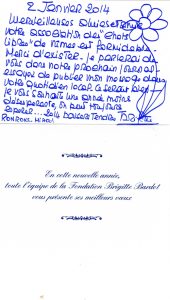 2 Janvier 2014
Merveilleuses
votre association des "Chats
Libres" de Nîmes est formidable.
Merci d'exister. Je parlerai de
vous dans notre prochain journal
essayez de publier mon message dans
votre quotidien local, ce serait bien
je vous souhaite une année moins
désespérante, on peut toujours
espérer... 2014 baisers tendres
RONRONS
En cette nouvelle année,
toute l'équipe de la Fondation Brigitte Bardot
vous présente ses meilleurs vœux